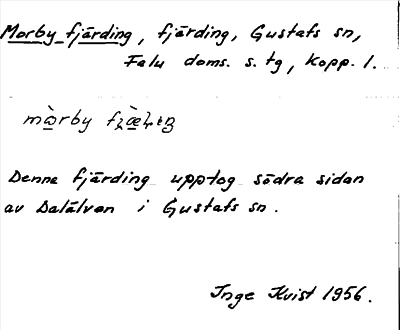 Morby fjärding, fjärding, Gustafs sn,
Falu doms. s. tg, Kopp. l.
mo̱rby
Denna fjärding upptog södra sidan
av Dalälven i Gustafs sn.
Inge Kvist 1956.